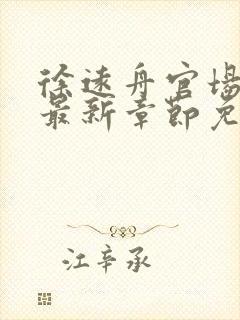 徐远舟官场
最新章节免
江辛承